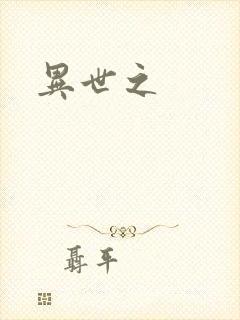 異世之
聶平